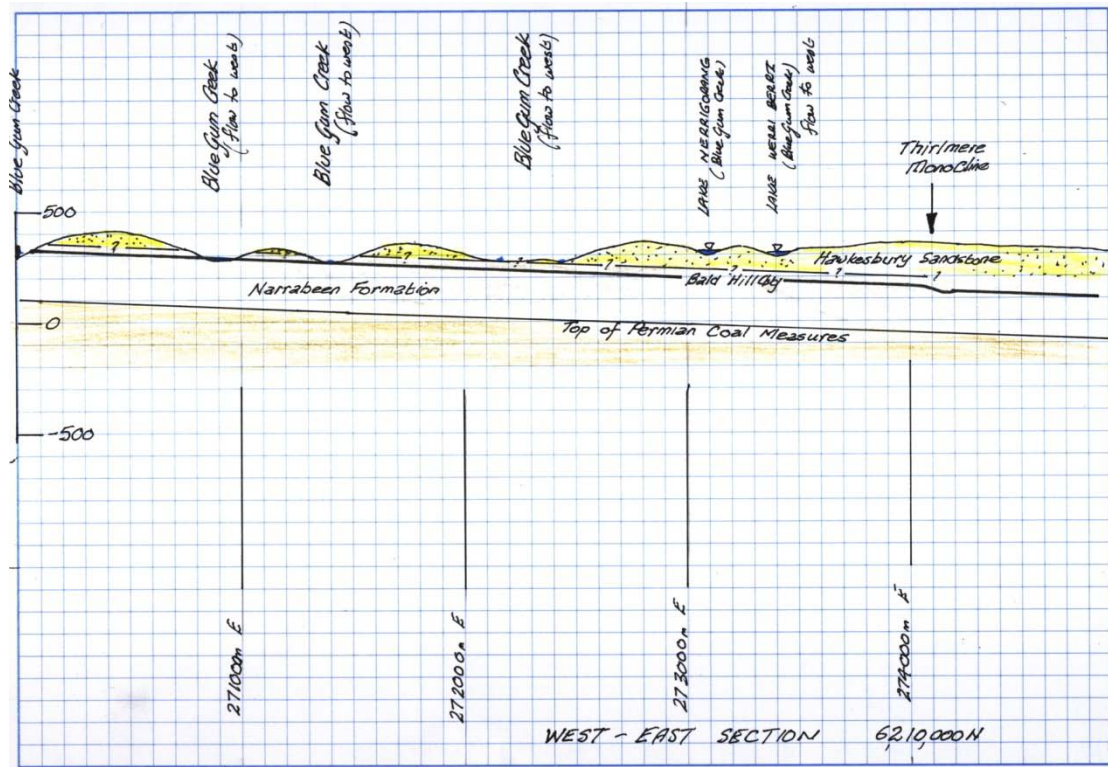 Blue Gum Creek
Blue Gum Creek
(flow to west)
Blue Gum Creek
(flow to west)
Blue Gum Creek
(flow to west)
LAKE NERRIGORANG
(Blue Gum Creek)
LAKE WERRI BERRI
(Blue Gum Creek)
flow to west
Thirlmere
Monocline
500
? ? ? ? ? ? ? ?
Hawkesbury Sandstone
Bald Hill Clay
Narrabeen Formation
0
Top of Permian Coal Measures
-500
271000m E
272000m E
273000m E
274000m E
WEST - EAST SECTION 6,210,000N